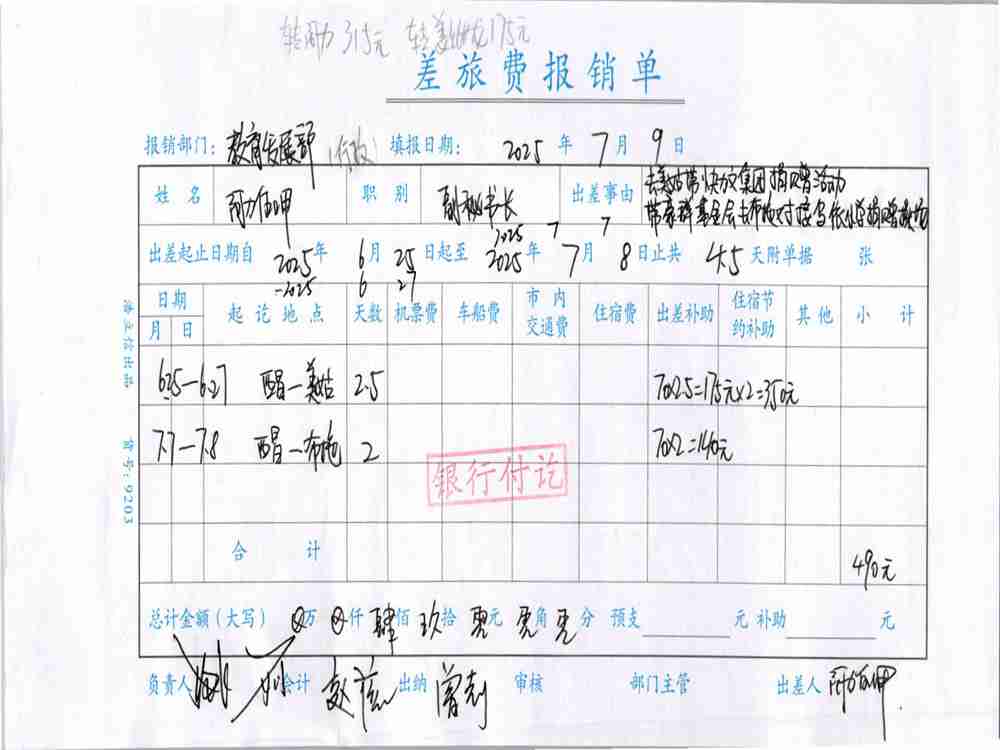 转 315元 转 175元
差旅费报销单
报销部门：教育发展部（行政） 填报日期：2025年7月9日
姓名 职别 副秘书长 出差事由 去美姑带快文集团捐赠活动
带 基金会去布拖对接乌依小学捐赠
2025 7 7
出差起止日期自2025年6月25日起至2025年7月8日止共4.5天附单据 张
-2025 6 27
日期 起讫地点 天数 机票费 车船费 市内交通费 住宿费 出差补助 住宿节约补助 其他 小计
月 日
6.25—6.27 西昌—美姑 2.5 70×2.5=175元×2=350元
7.7—7.8 西昌—布拖 2 70×2=140元
银行付讫
合计 490元
总计金额（大写） ⊗万⊗仟肆佰玖拾零元零角零分 预支 元 补助 元
负责人 会计 出纳 审核 部门主管 出差人
立信出品 货号：9203